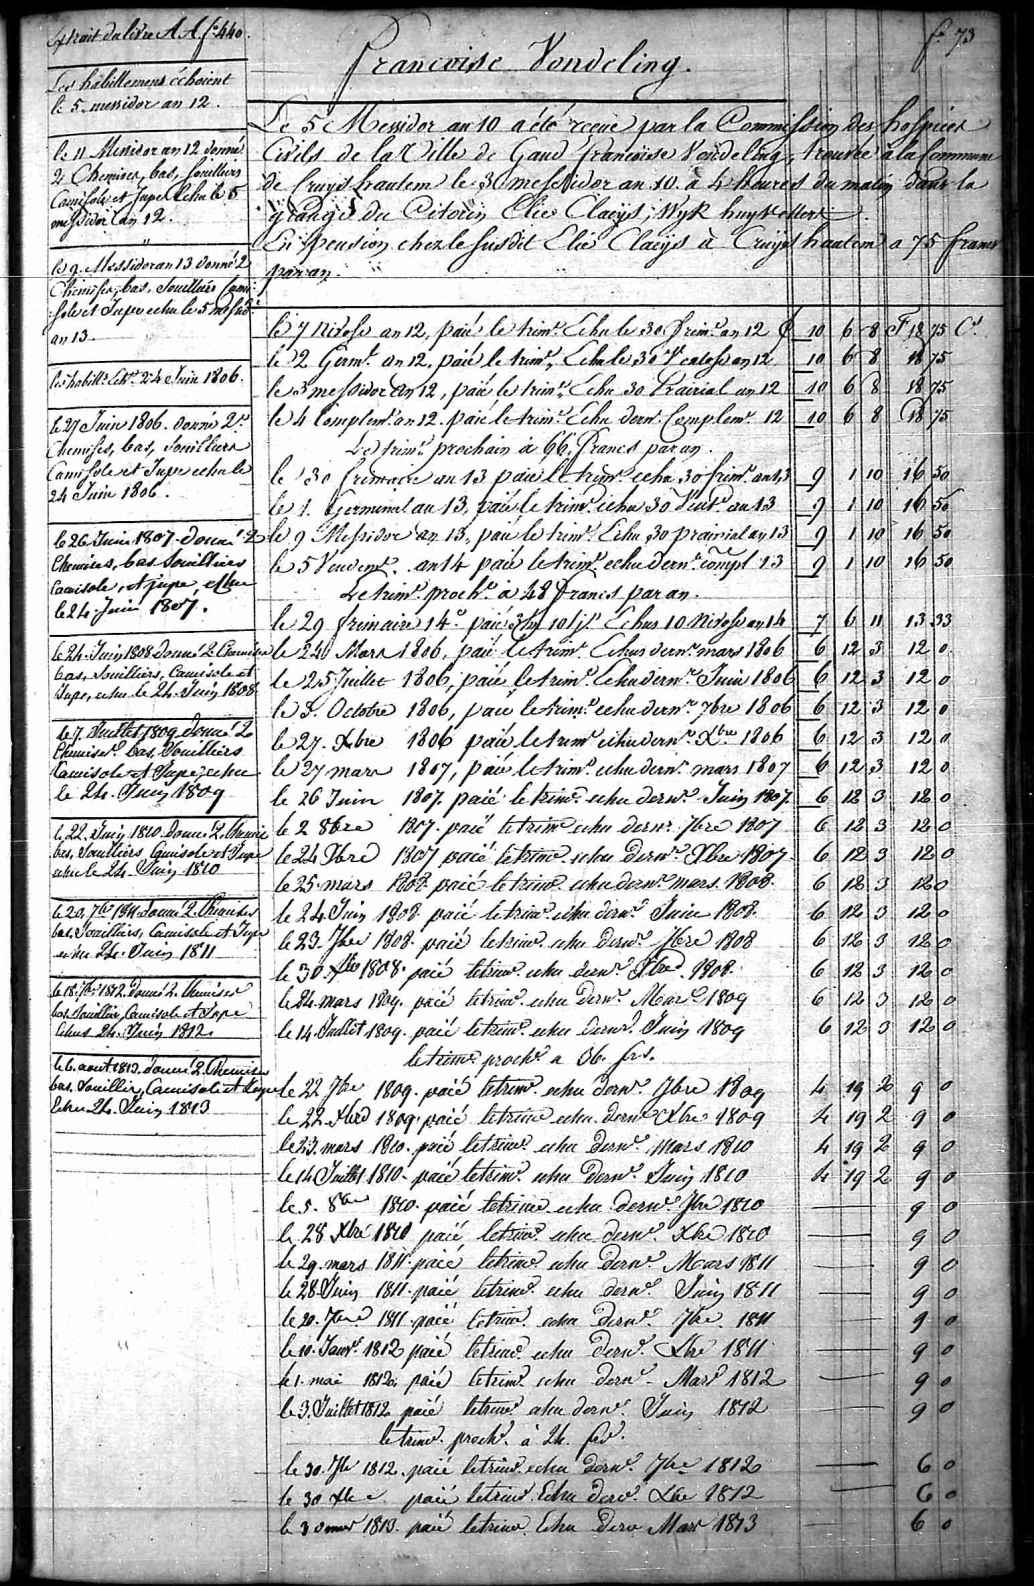 Extrait du livre A A. fo 440.
fo 73
Francoise Vondeling.
Les habillemens échoient
le 5 messidor an 12.
le 11 Messidor an 12 donné
2 Chemises, bas, souilliers
Camisole et Jupe Echu le 5
messidor an 12.
le 9 Messidor an 13 donné 2
Chemises, bas, Souilliers Cami-
sole et Jupe echu le 5 messid.r
an 13
les habill.s Ech. 24 Juin 1806.
le 27 Juin 1806. donné 2
Chemises, bas, Souilliers
Camisole et Jupe echu le
24 Juin 1806.
le 26 Juin 1807 donné 2
Chemises, bas Souilliers
Camisole, et jupe, echu
le 24 Juin 1807.
le 24 Juin 1808 donné 2 Chemises
bas, Souilliers, Camisole et
Jupe, echu le 24 Juin 1808
le 7. Juillet 1809 donné 2
Chemises bas, Souilliers
Camisole et Jupe echu
le 24. Juin 1809
le 22. Juin 1810 donné 2 Chemise
bas, Souilliers Camisole et Jupe
echu le 24. Juin 1810
le 20. 7bre 1811 donné 2 Chemises
bas, Souilliers, Camisole et Jupe
echu 24. Juin 1811
le 18. 7bre 1812. donné 2 Chemises
bas, Souillier, Camisole et Jupe
Echus 24. Juin 1812.
le 6. aout 1813. donné 2 Chemise
bas. Souillier, Camisole et Jupe
Echu 24. Juin 1813
Le 5 Messidor an 10 a été reçue par la Commission des hospices
Civils de la Ville de Gand francoise Vondeling, trouvée à la Commune
de Cruyshautem le 30 messidor an 10. à 4 heures du matin dans la
grange du Citoein Elie Claeys, Wyk huyk
En pension chez le susdit Elie Claeys à Cruyshautem a 75 francs
par an.
le 7 Nivose an 12, paié le trim.e Echu le 30 frim.e an 12 £ 10 6 8 F 18 75 C.s
le 2 Germ.l an 12, paié le trim.e, Echu le 30 Ventose an 12 10 6 8 18 75
le 3 messidor an 12, paié le trim.e Echu 30 Prairial an 12 10 6 8 18 75
le 4 Complem.r an 12. paié le trim.e Echu dern. Complem.r 12 10 6 8 18 75
Le trim.e prochain à 66 francs par an.
le 30 frimaire an 13 paié le trim.e echu 30 frim.e an 13 9 1 10 16 50
le 1. Germinal an 13, paié le trim.e echu 30 Vent.e an 13 9 1 10 16 50
le 9 Messidor an 13, paié le trim.e Echu 30 prairial an 13 9 1 10 16 50
le 5 Vendem.re an 14 paié le trim.e echu dern.r compl 13 9 1 10 16 50
Le trim.e proch.n à 48 francs par an.
le 29 frimaire 14.e paié 3 m 10 j.rs Echus 10 Nivose an 14 7 6 11 13 33
le 24 Mars 1806, paié le trim.e Echus dern.r mars 1806 6 12 3 12 0
le 25 Juillet 1806, paié le trim.e Echu dern.r Juin 1806 6 12 3 12 0
le 3. Octobre 1806, paié le trim.e echu dern.r 7bre 1806 6 12 3 12 0
le 27. Xbre 1806 paié le trim.e echu dern.r Xbre 1806 6 12 3 12 0
le 27 mars 1807, paié le trim.e echu dern.r mars 1807 6 12 3 12 0
le 26 Juin 1807. paié le trim.e echu dern.r Juin 1807 6 12 3 12 0
le 2 8bre 1807. paié le trim.e echu dern.r 7bre 1807 6 12 3 12 0
le 24 Xbre 1807 paié le trim.e echu dern.r Xbre 1807 6 12 3 12 0
le 25. mars 1808. paié le trim.e echu dern.r mars. 1808. 6 12 3 12 0
le 24 Juin 1808 paié le trim.e echu dern.r Juin 1808. 6 12 3 12 0
le 23. 7bre 1808. paié le trim.e echu dern.r 7bre 1808 6 12 3 12 0
le 30. Xbre 1808. paié le trim.e echu dern.r Xbre. 1808. 6 12 3 12 0
le 24. mars 1809. paié le trim.e echu dern.r Mars 1809 6 12 3 12 0
le 14. Juillet 1809. paié le trim.e echu dern.r Juin 1809 6 12 3 12 0
le trim.e proch.n a 36. frs.
le 22 7bre 1809. paié le trim.e echu dern.r 7bre 1809 4 19 2 9 0
le 22. Xbre 1809. paié le trim.e echu dern.r Xbre 1809 4 19 2 9 0
le 23. mars 1810. paié le trim.e echu dern.r Mars 1810 4 19 2 9 0
le 14 Juillet 1810. paié le trim.e echu dern.r Juin 1810 4 19 2 9 0
le 5. 8bre 1810. paié le trim.e echu dern.r 7bre 1810 9 0
le 28 Xbre 1810 paié le trim.e echu dern.r Xbre 1810 9 0
le 29. mars 1811. paié le trim.e echu dern.r Mars 1811 9 0
le 28 Juin 1811. paié le trim.e echu dern.r Juin 1811 9 0
le 20. 7bre 1811. paié le trim.e echu dern.r 7bre 1811 9 0
le 10. Janv.r 1812 paié le trim.e echu dern.r Xbre 1811 9 0
le 1. mai 1812. paié le trim.e echu dern.r Mars 1812 9 0
le 3. Juillet 1812 paié le trim.e echu dern.r Juin 1812 9 0
le trim.e proch.n à 24. frs.
le 30. 7bre 1812. paié le trim.e echu dern.r 7bre 1812 6 0
le 30 Xbre paié le trim.e Echu dern.r Xbre 1812 6 0
le 30 mars 1813. paié le trim.e Echu dern Mars 1813 6 0